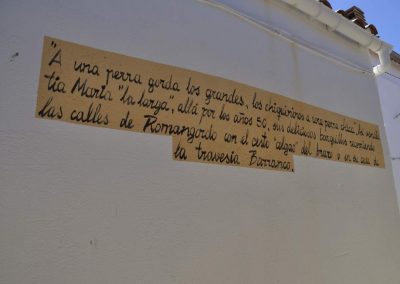 "A una perra gorda los grandes, los chiquininos a una perra chica", ha vendía
tía María "la larga", allá por los años 50, sus deliciosos barquillos recorriendo
las calles de Romangordo con el cesto "algao" del brazo o en su casa de
la travesía Barranco.